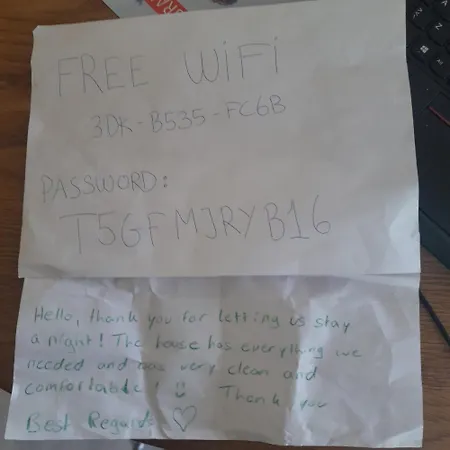 FREE WiFi
3DK-B535-FC6B
PASSWORD:
T5GFMJRYB16
Hello, thank you for letting us stay
a night! The house has everything we
needed and was very clean and
comfortable! Thank you
Best Regards